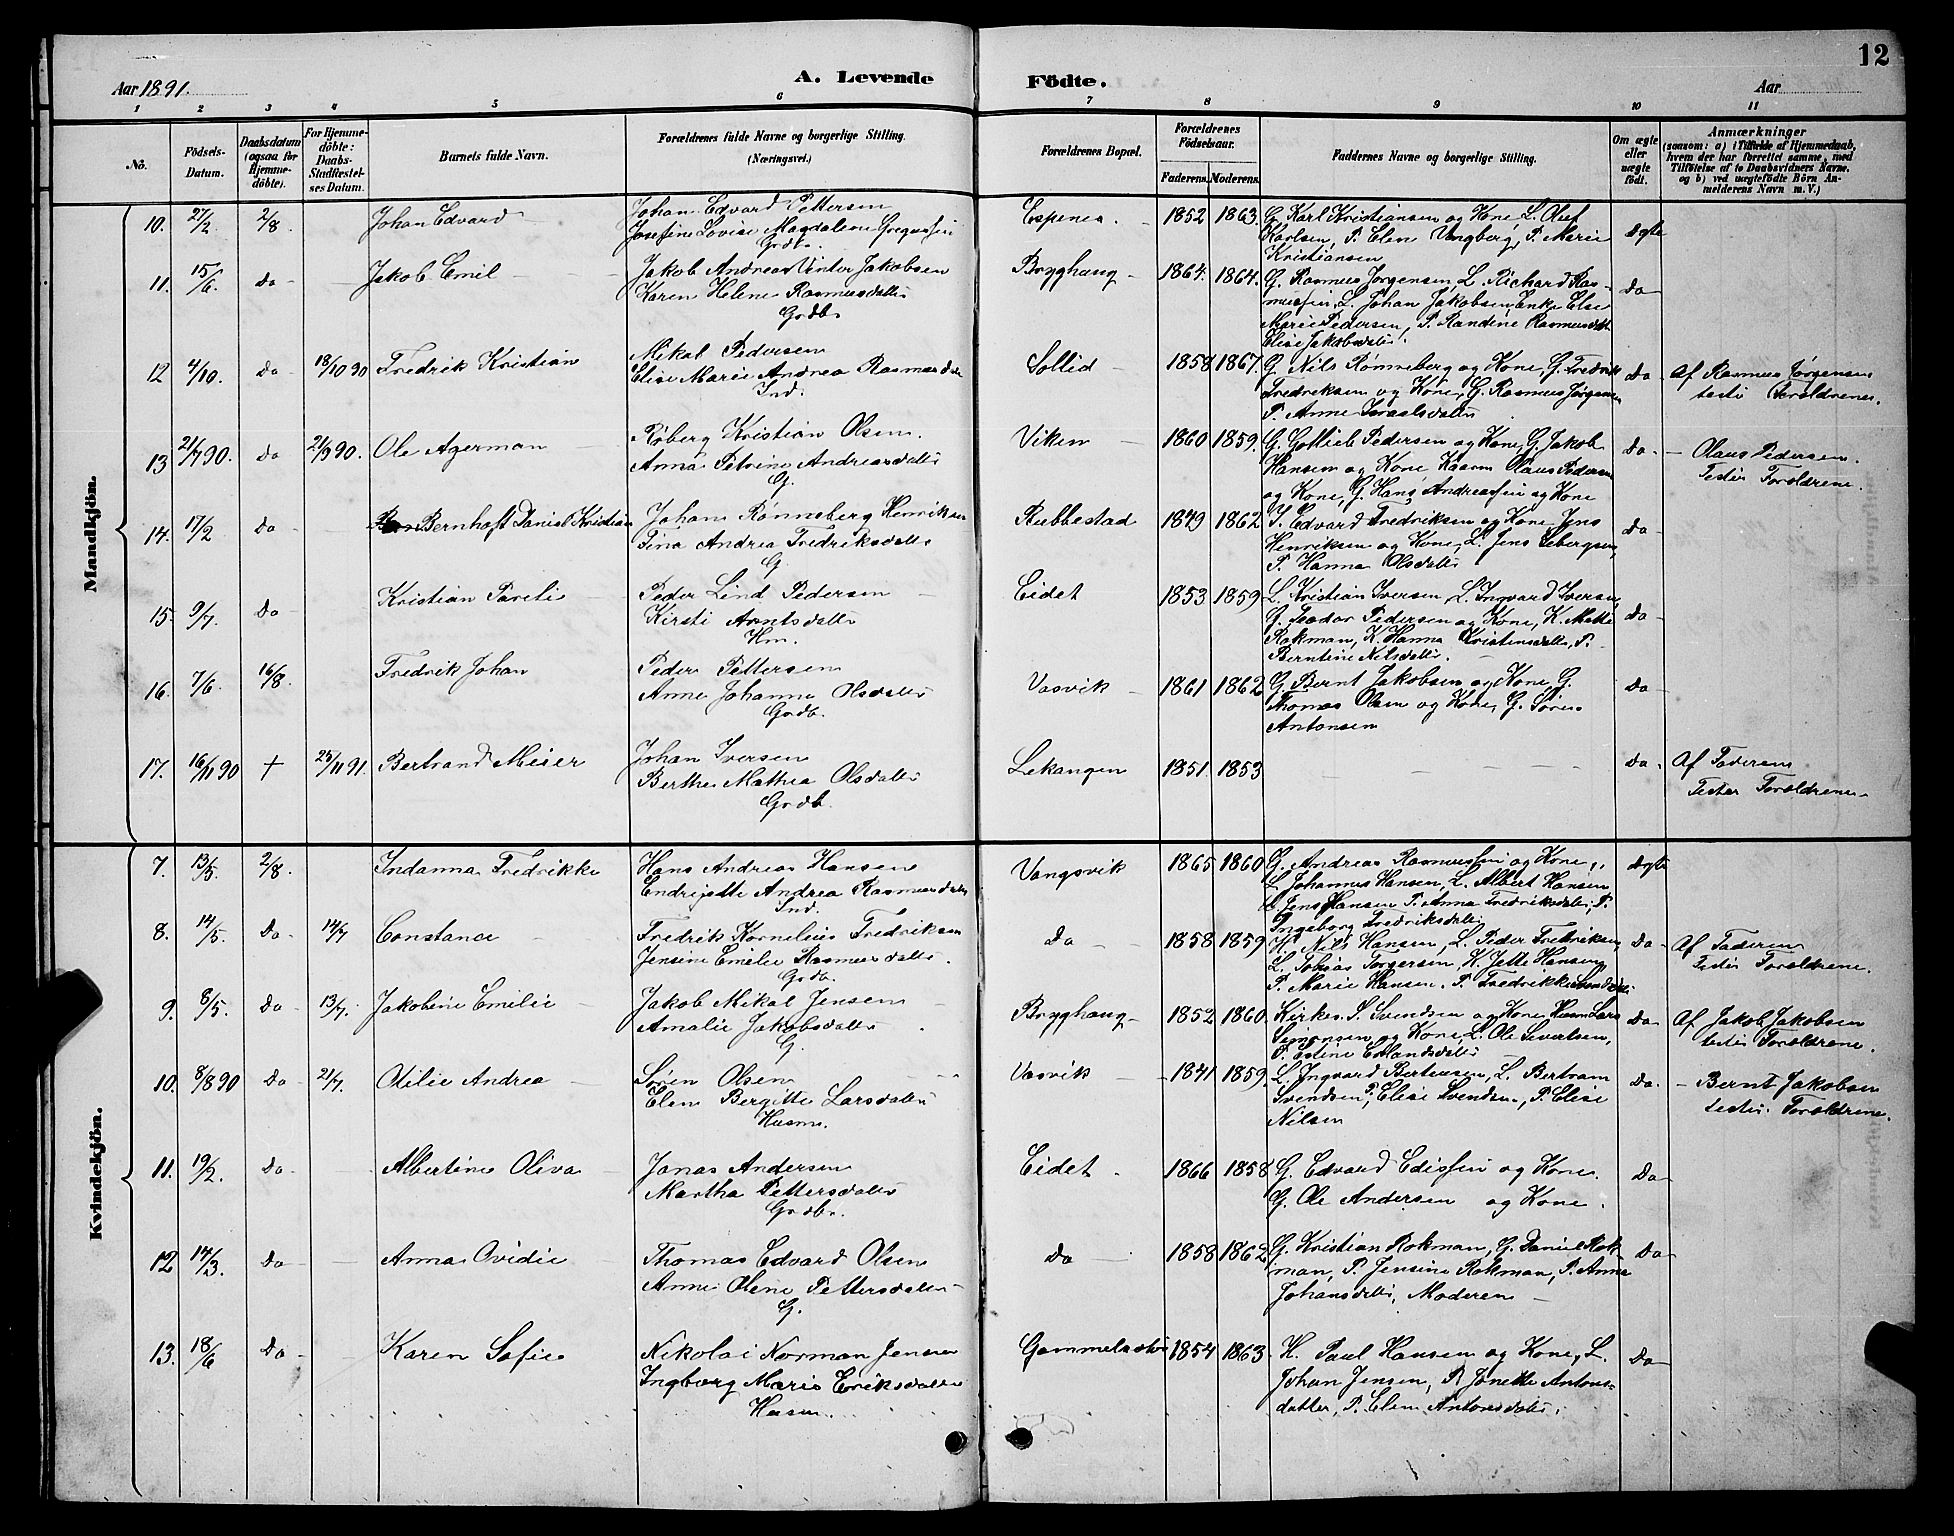 12
Aar 1891.
A. Levende Födte.
Aar
1 2 3 4 5 6 7 8 9 10 11
No.
Födsels-Datum.
Daabsdatum (ogsaa for Hjemmedöbte).
For Hjemmedöbte: Daabs-Stadfæstelses Datum.
Barnets fulde Navn.
Forældrenes fulde Navne og borgerlige Stilling. (Næringsvei.)
Forældrenes Bopæl.
Forældrenes Födselsaar.
Faderens. Moderens.
Faddernes Navne og borgerlige Stilling.
Om ægte eller uægte födt.
Anmærkninger
(saasom: a) i Tilfælde af Hjemmedaab, hvem der har forrettet samme, med Tilföielse af to Daabsvidners Navne, og b) ved uægtefödte Börn Anmelderens Navn m. V.)
Mandkjön.
10. 27/2 2/8. Johan Edvard Johan Edvard Pettersen Espenes. 1852 1863. G. Karl Kristiansen og Kone L. Oluf
Josefine Lovise Magdalene Gregersen Karlsen, P. Elen Vangberg, P. Marie Ægte
Grdb. Kristiansen
11. 15/6. Do Jakob Emil Jakob Andreas Vinter Jakobsen Brygghaug 1864. 1864. G. Rasmus Jørgensen, L. Richard Ras-
Karen Helene Rasmusdatter mussen, L. Johan Jakobsen, Enke Else Do
Grdb. Marie Pedersen, P. Randine Rasmusdatt
Elise Jakobsdatter.
12 4/10. Do 18/10 90 Fredrik Kristian Mikal Pedersen Sollid 1858 1867. G. Nils Rønneberg og Kone, G. Fredrik Do Af Rasmus Jørgensen
Elise Marie Andrea Rasmusdatter Fredriksen og Kone, G. Rasmus Jørgensen testes Forældrene.
Ind. P. Anne Israelsdatter
13 21/7 90. Do 21/9 90. Ole Agerman Røberg Kristian Olsen. Viken 1860 1859. G. Gotlieb Pedersen og Kone, G. Jakob Do Olaus Pedersen.
Anna Petrine Andreasdatter Hansen og Kone Husm Olaus Pedersen Tester Forældrene.
G. og Kone, G. Hans Andreassen og Kone
14. 17/2 Do Bernhoft Daniel Kristian Johan Rønneberg Henriksen Rubbestad 1849 1862 I. Edvard Fredriksen og Kone Jens Do
Tina Andrea Fredriksdatter Henriksen og Kone, L. Jens Sebergsen,
G. P. Hanna Olsdatter
15. 9/7. Do Kristian Pareli Peder Lind Pedersen Eidet 1853 1859 L. Kristian Iversen, L. Ingvard Iversen, Do
Kirsti Arntsdatter G. Teodor Pedersen og Kone, K. Mette
Hm. Rokman, K. Hanna Kristensdatter, P.
Berntine Nilsdatter.
16. 7/6. 16/8. Fredrik Johan Peder Pettersen Vasvik 1861 1862 G. Bernt Jakobsen og Kone, G. Do
Anne Johanne Olsdatter Thomas Olsen og Kone, G. Søren
Grdb. Antonsen
17. 16/11 90 + 25/11 91. Bertrand Meier Johan Iversen Lekangen 1851. 1853 Do Af Faderen
Berthe Mathea Olsdatter Tester Forældrene
Grdb.
Kvindekjön.
7. 13/5 2/8. Indanna Fredrikke Hans Andreas Hansen Vangsvik 1865 1860 G. Andreas Rasmussen og Kone, Ægte
Endrijette Andrea Rasmusdatter L. Johannes Hansen, L. Albert Hansen
Ind. L. Jens Hansen P. Anna Fredriksdatter, P.
Ingeborg Fredriksdatter
8. 14/5. Do 14/7 Constance Fredrik Kornelius Fredriksen Do 1858 1859 H. Nils Hansen, L. Peder Fredriksen, Do Af Faderen
Jensine Emelie Rasmusdatter. L. Tobias Torgersen, K. Jette Hansen, Tester Forældrene.
Grdb. P. Marie Hansen. P. Fredrikke
9. 8/5. Do 13/7. Jakobine Emilie Jakob Mikal Jensen Brygghaug 1852 1860. Kirkes. S. Svendsen og Kone, Husm Lars Do Af Jakob Jakobsen
Amalie Jakobsdatter Simonsen og Kone, L. Ole Sivertsen, testes Forældrene.
G. P. Estine Erlandsdatter
10. 8/8 90 Do 21/7. Otilie Andrea Søren Olsen Vasvik 1841 1859 L. Ingvard Berteusen, L. Bertram Do. Bernt Jakobsen
Elen Bergitte Larsdatter Svendsen, P. Elise Svendsen, P. Elise testes. Forældrene.
Husm. Nilsen
11. 19/2. Do Albertine Oliva Jonas Andersen Eidet 1866 1858 G. Edvard Edissen og Kone. Do
Martha Pettersdatter G. Ole Andersen og Kone.
Grdb.
12 14/3. Do Anna Ovidie Thomas Edvard Olsen Do 1858 1862 G. Kristian Rokman, G. Daniel Rok- Do
Anne Oline Pettersdatter man, P. Jensine Rokman, P. Anna
G. Johansdatter, Moderen
13. 18/6 Do Karen Sofie Nikolai Norman Jensen 1854 1863. H. Paul Hansen og Kone, L. Do
Ingborg Marie Eriksdatter Johan Jensen, P. Jonette Antons-
Husm. datter, P. Elen Antonsdatter.